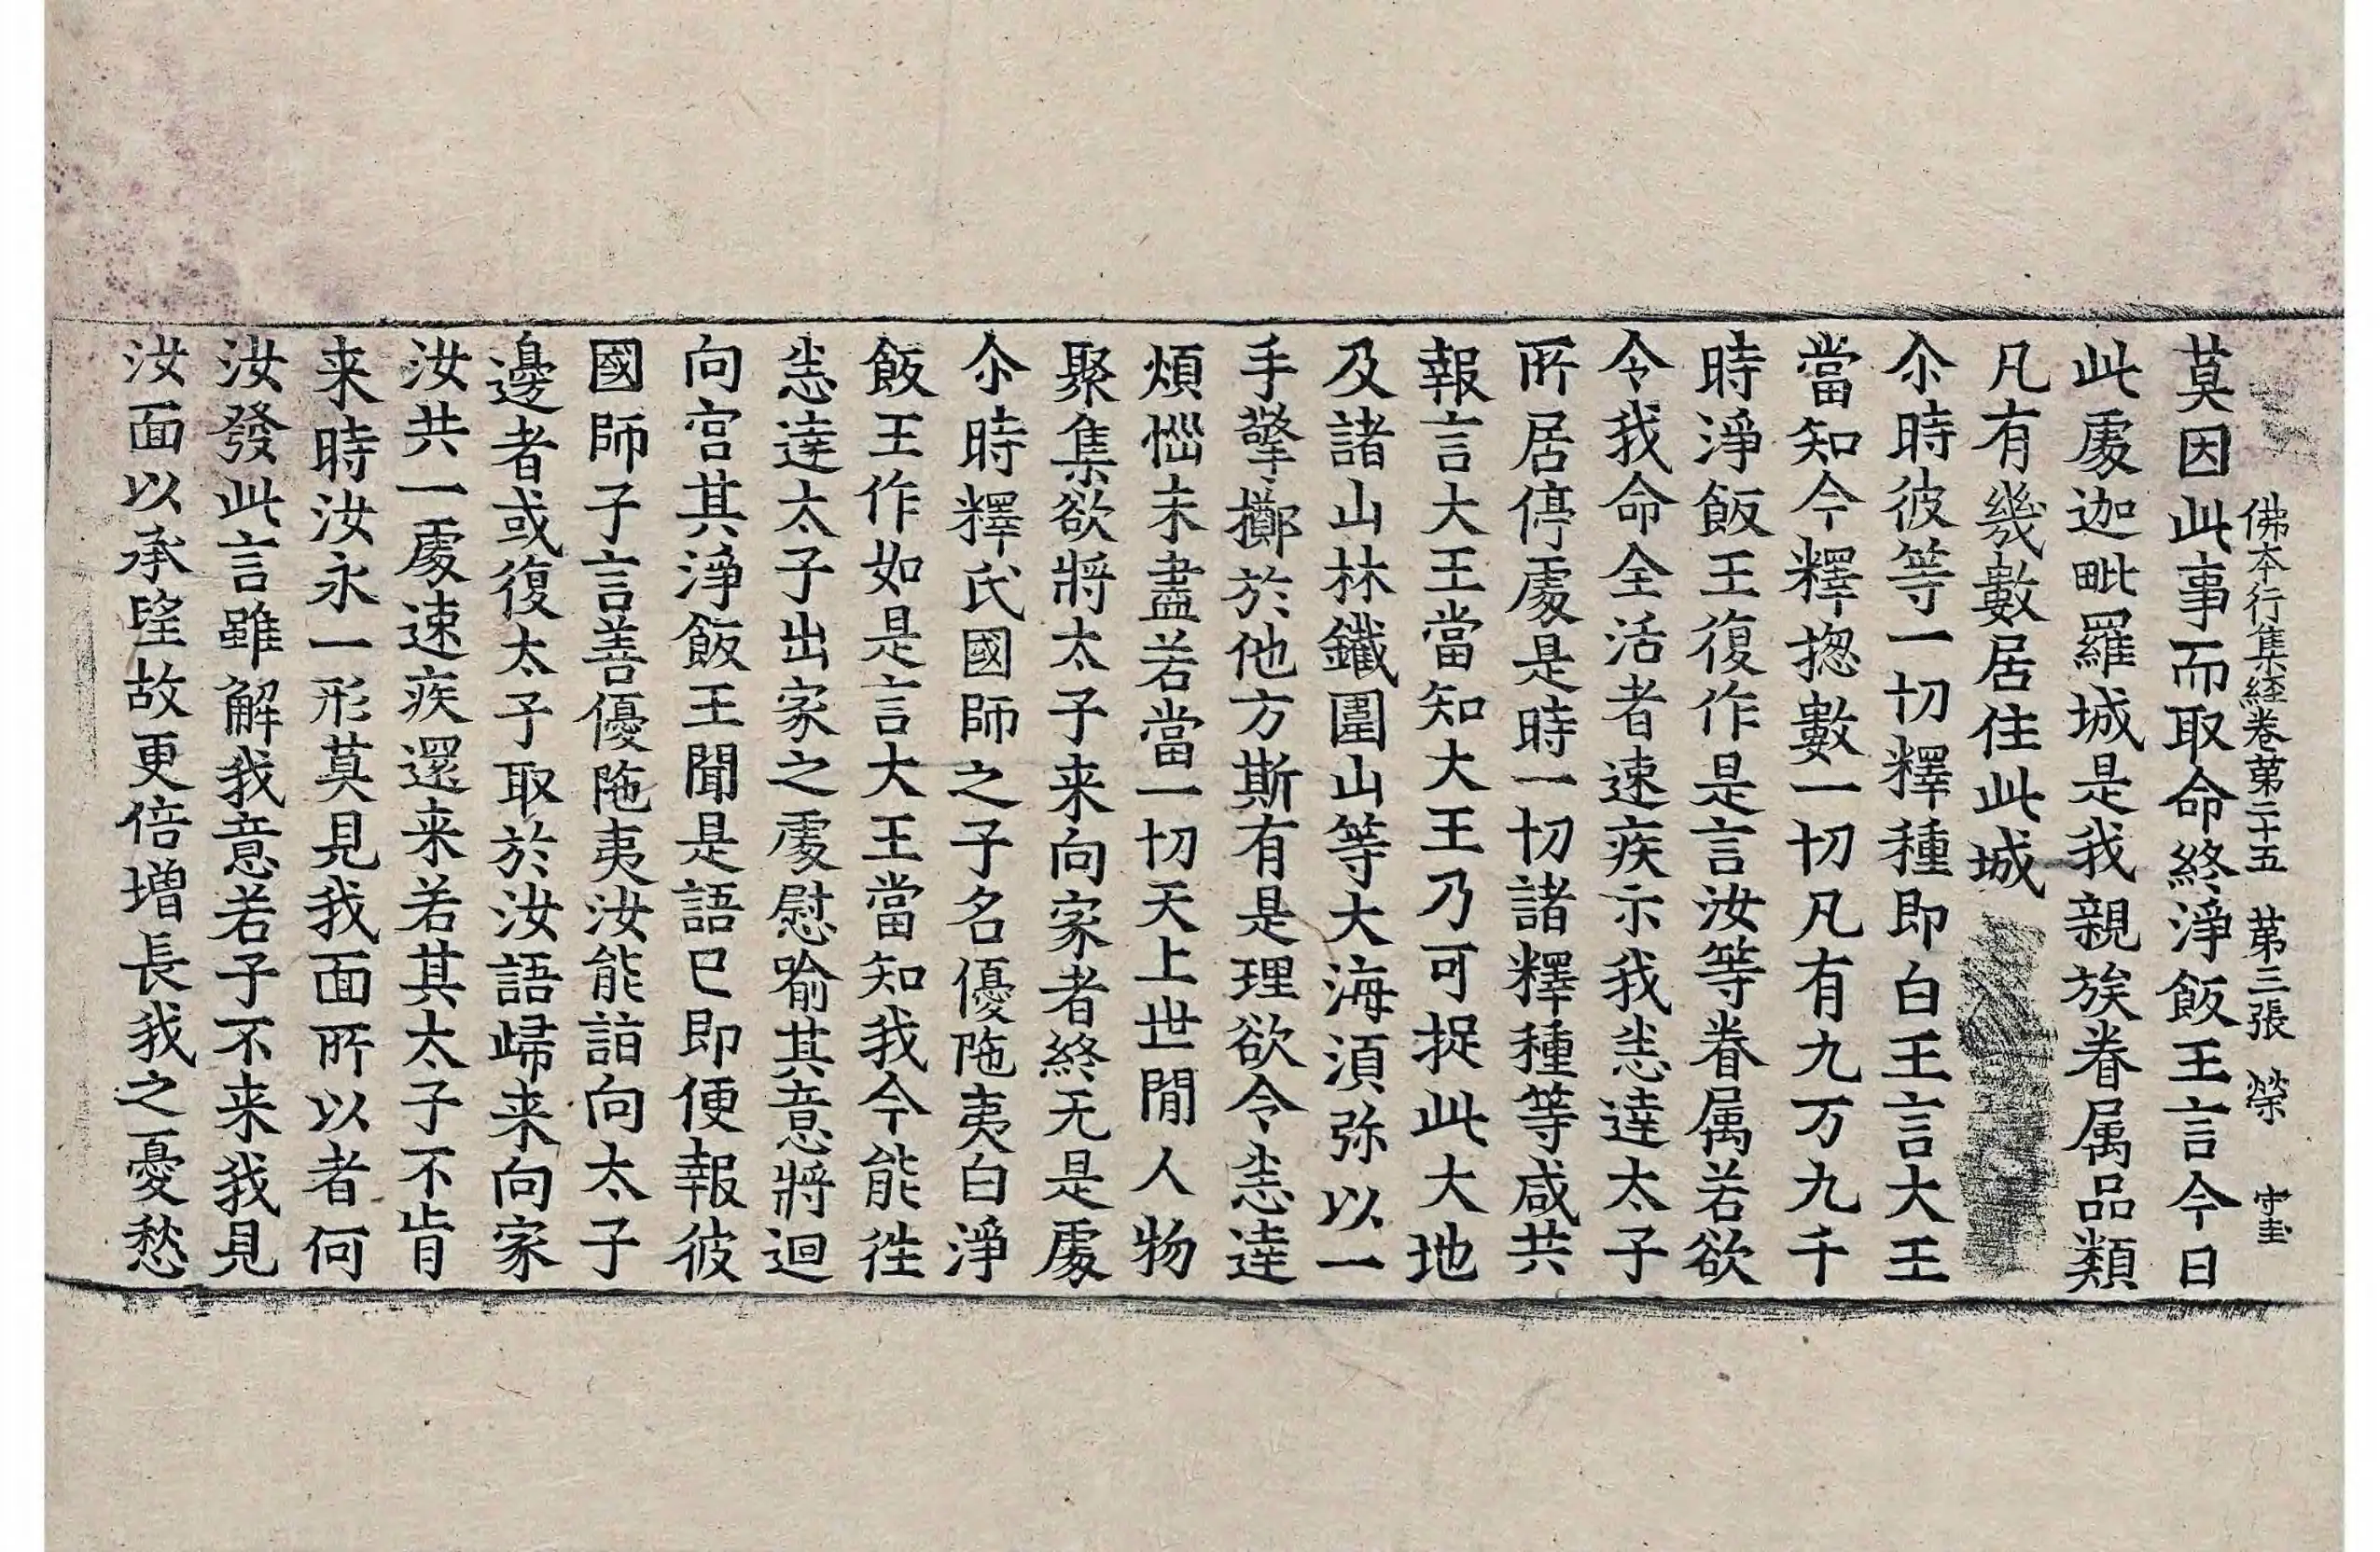 佛本行集經卷第二十五 第三張 榮 守圭
莫因此事而取命終淨飯王言今日
此處迦毗羅城是我親族眷属品類
凡有幾數居住此城
尒時彼等一切釋種即白王言大王
當知今釋揔數一切凡有九万九千
時淨飯王復作是言汝等眷属若欲
令我命全活者速疾示我悉達太子
所居停處是時一切諸釋種等咸共
報言大王當知大王乃可捉此大地
及諸山林鐵圍山等大海湏弥以一
手擎擲於他方斯有是理欲令悉達
煩惱未盡若當一切天上世閒人物
聚集欲將太子来向家者終无是處
尒時釋氏國師之子名優陁夷白淨
飯王作如是言大王當知我今能徃
悉達太子出家之處慰喻其意將迴
向宫其淨飯王聞是語已即便報彼
國師子言善優陁夷汝能詣向太子
邊者或復太子取於汝語歸来向家
汝共一處速疾還来若其太子不肯
来時汝永一形莫見我面所以者何
汝發此言雖解我意若子不来我見
汝面以承望故更倍增長我之憂愁